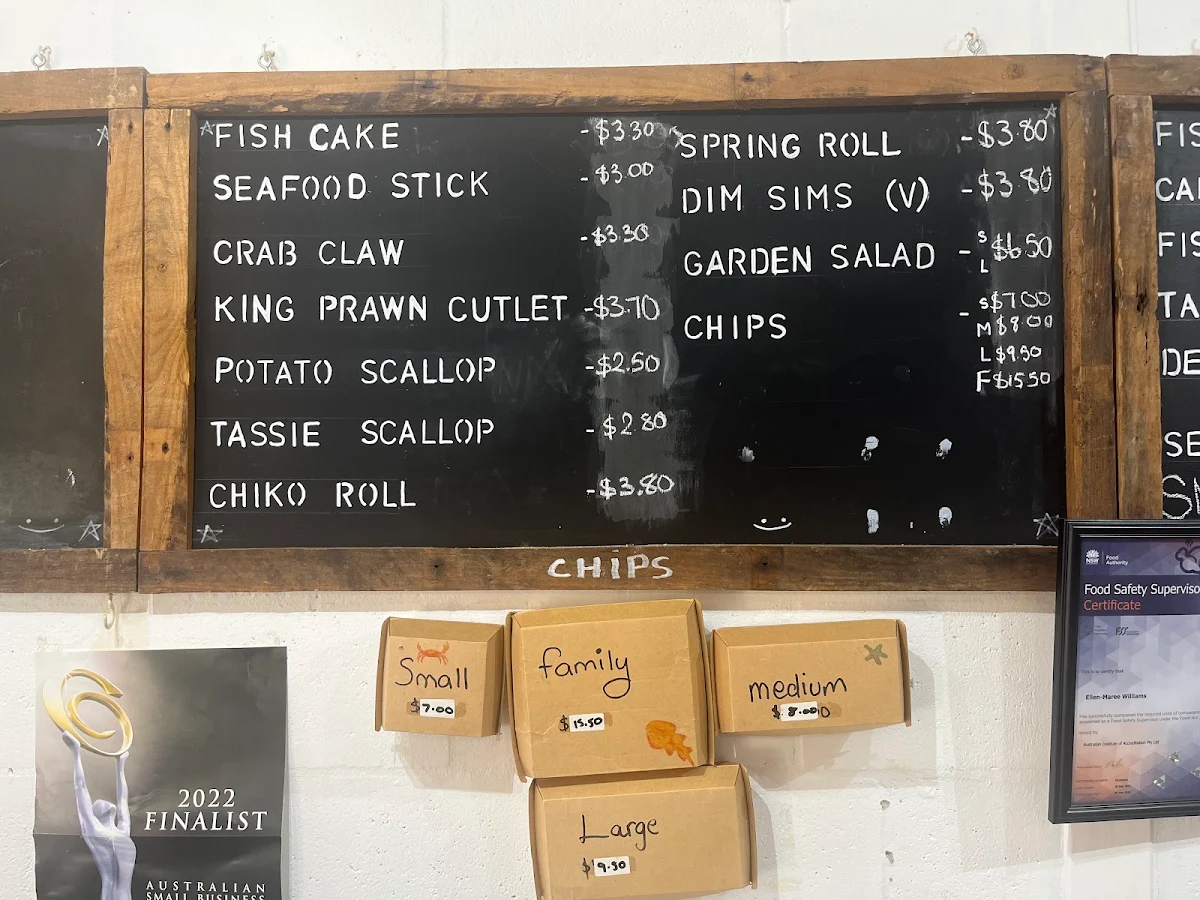 FISH CAKE -$3.30
SEAFOOD STICK -$3.00
CRAB CLAW -$3.30
KING PRAWN CUTLET -$3.70
POTATO SCALLOP -$2.50
TASSIE SCALLOP -$2.80
CHIKO ROLL -$3.80
SPRING ROLL -$3.80
DIM SIMS (V) -$3.80
GARDEN SALAD - S L $6.50
CHIPS - S $7.00
M $8.00
L $9.50
F $15.50
FIS
CA
FIS
TA
DE
SE
CHIPS
Small
$7.00
family
$15.50
medium
$8.00
Large
$9.50
2022
FINALIST
AUSTRALIAN
SMALL BUSINESS
NSW
Food
Authority
Food Safety Superviso
Certificate
This is to certify that
Ellen-Maree Williams